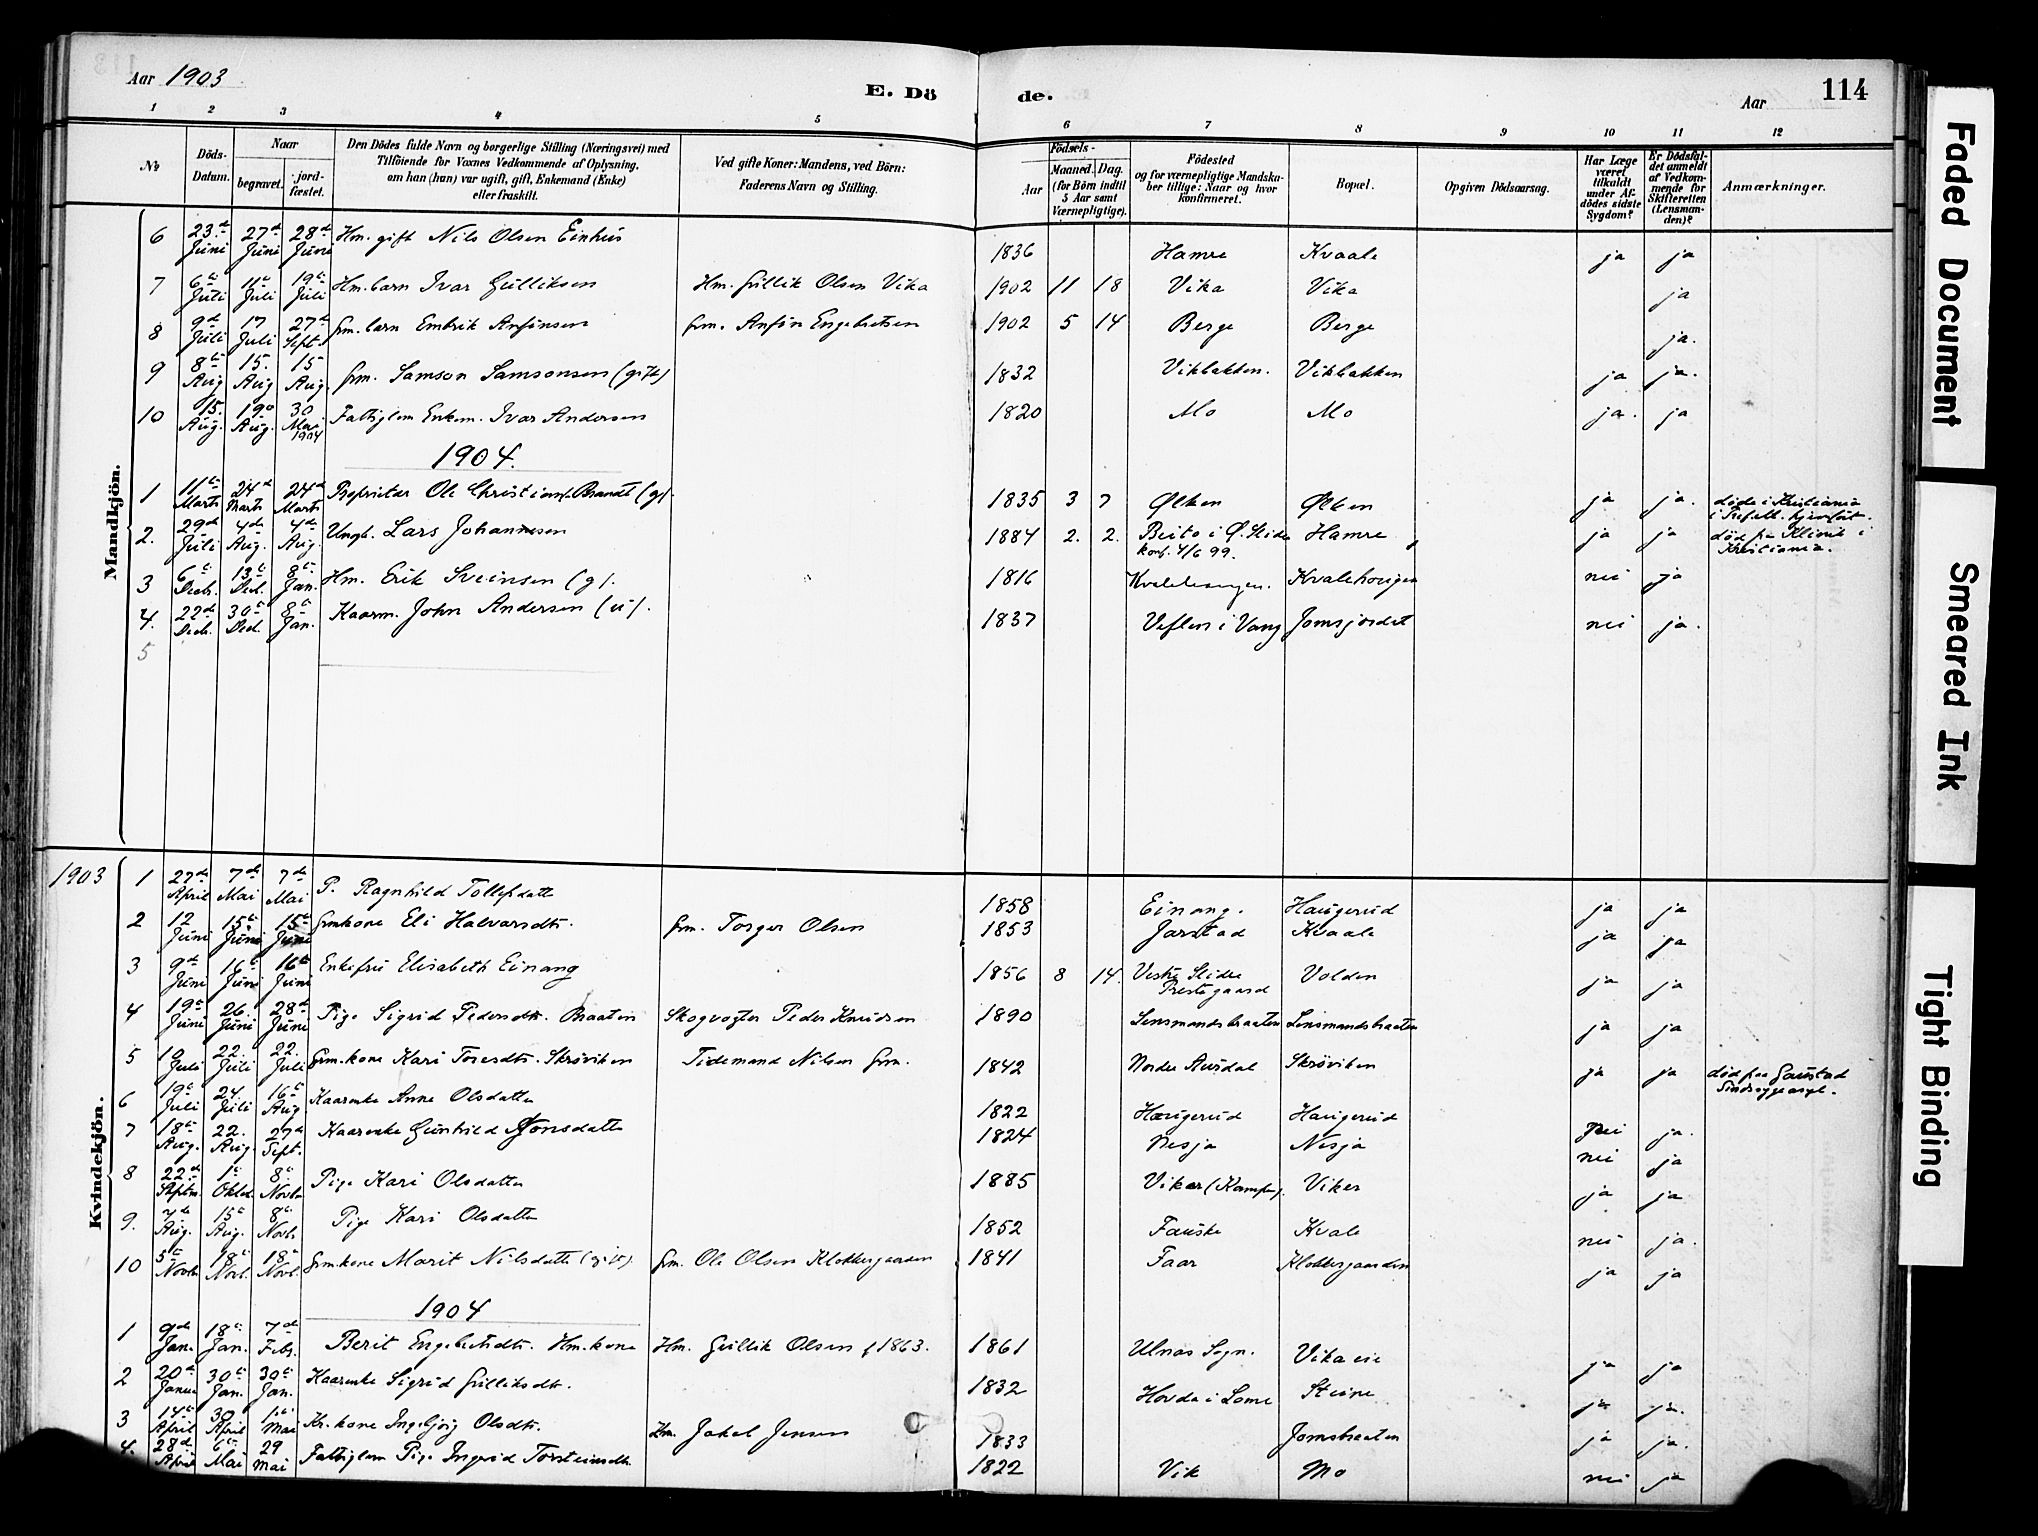 Aar 1903
E. Dö
de.
Aar
114
1 2 3 4 5 6 7 8 9 10 11 12
No
Döds-
Datum.
Naar
begravet.
jord-
fæstet.
Den Dödes fulde Navn og borgerlige Stilling (Næringsvei) med
Tilföiende for Voxnes Vedkommende af Oplysning,
om han (hun) var ugift, gift, Enkemand (Enke)
eller fraskilt.
Ved gifte Koner: Mandens, ved Börn:
Faderens Navn og Stilling.
Födsels-
Aar
Maaned. Dag.
(for Börn indtil
5 Aar samt
Værnepligtige).
Födested
og for værnepligtige Mandska-
ber tillige: Naar og hvor
konfirmeret.
Bopæl.
Opgiven Dödsaarsag.
Har Læge
været
tilkaldt
under Af-
dödes sidste
Sygdom?
Er Dödsfal-
det anmeldt
af Vedkom-
mende for
Skifteretten
(Lensman-
den)?
Anmærkninger.
Mandkjön.
6 23de Juni 27de Juni 28de Juni Hm. gift Nils Olsen Einhus 1836 Hamre Kvaale ja ja
7 6te Juli 11te Juli 19de Juli Hm. barn Ivar Gulliksen Hm. Gullik Olsen Vika 1902 11 18 Vika Vika ja
8 9de Juli 17 Juli 27de Sept. Grm. barn Embrik Anfinsen Grm. Anfin Engebretsen 1902 5 14 Berge Berge ja.
9 8de Aug 15. Aug 15 Aug. Grm. Samson Samsonsen (gift) 1832 Vikbakken. Vikbakken ja ja.
10 15. Aug. 19de Aug. 30 Mai 1904 Fattiglem Enkem. Ivar Andersen 1820 Mo Mo ja. ja
1904.
1 11te Marts 24de Marts 24de Marts Proprietær Ole Christians. Brandt (g). 1835 3 7 Ølken Ølken ja ja. døde i Kristiania
2. 29de Juli 4de Aug. 4de Aug. Ungk. Lars Johannesen 1884 2. 2. Beito i Ø. Slidre Hamre ja ja død paa Klinik i
konf. 4/6 99. Kristiania.
3 6te Decb. 13de Dec. 8de Jan. Hm. Erik Sveinsen (g). 1816 Kvalehaugen. Kvalehougen nei ja
4. 22de Decb. 30te Dec. 8de Jan. Kaarm. John Andersen (u). 1837 Veflen i Vang Jomsjordet nei ja.
5
1903
Kvindekjön.
1 27de April 7de Mai 7de Mai P. Ragnhild Tollefsdatter 1858 Einang. Haugerud ja ja
2 12 Juni 15de Juni 15de Juni Grmkone Eli Halvarsdtr. Grm. Torger Olsen 1853 Jarstad Kvaale ja ja
3 9de Juni 16de Juni 16de Juni Enkefru Elisabeth Einang 1856 8 14. Vestre Slidre Volden ja ja
Prestegaard
4 19de Juni 26. Juni 28de Juni Pige Sigrid Pedersdtr. Braaten Skogvogter Peder Knudsen 1890 Lensmandsbraaten Lensmandsbraaten ja ja
5 19 Juli 22. Juli 22. Juli Grm.kone Kari Toresdtr. Skrøviken Tidemand Nilsen Grm. 1842 Nordre Aurdal Skrøviken ja ja død paa Gaustad
Sindssygeasyl.
6 19de Juli 24. Juli 16de Aug Kaarenke Anne Olsdatter 1822 Haugerud Haugerud nei ja.
7 18de Aug. 22. Aug. 27de Sept. Kaarenke Gunhild Jonsdatter 1824 Nesja Nesja nei ja
8 22de Septbr. 1ste Oktob. 8de Novbr Pige Kari Olsdatter 1885 Viker (Kampen). Viker ja ja
9. 7de Aug. 15de Aug. 8de Novb. Pige Kari Olsdatter 1852 Fauske Kvale nei ja.
10 5te Novbr 18de Novb. 18de Novb. Grm.kone Marit Nilsdatter (gift) Grm. Ole Olsen Klokkergaarden 1841 Faar Klokkergaarden ja ja
1904
1 9de Jan. 18de Jan. 7de Febr. Berit Engebretsdtr. Hm.kone Hm. Gullik Olsen f 1863. 1861 Ulnæs Sogn. Vika eie ja ja
2 20de Januar 30te Jan. 30te Jan. Kaarenke Sigrid Gulliksdtr. 1832 Hovde i Lome Steine ja ja.
3 14de April 30 April 1ste Mai Kr. kone Ingebjørg Olsdtr. Km. Jakob Jensen 1833 Jomsbraaten ja ja.
4. 28de April 6te Mai 29 Mai Fattiglem Pige Ingrid Torsteinsdtr. 1822 Vik Mo nei ja
Faded Document
Smeared Ink
Tight Binding